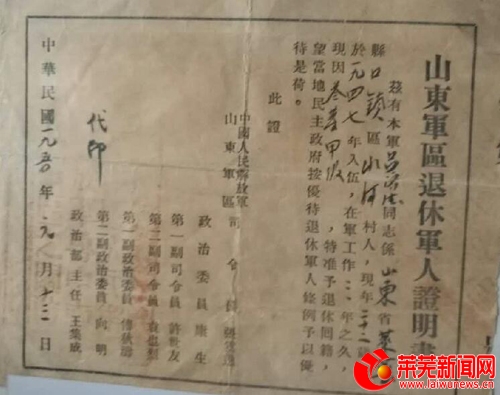 山東軍區退休軍人證明書
茲有本軍呂 同志係山東省萊
縣口鎮區山 村人,現年二十二
於一九四七年入伍,在軍工作二、年之久,
現因 甲級,特准予退休回籍,
望當地民主政府按優待退休軍人條例予以優
待是荷。
此證
中國人民解放軍
山東軍區司令員
政治委員康生
第一副司令員許世友
第二副司令員袁也烈
第一副政治委員傅秋濤
第二副政治委員向明
政治部主任王集成
代印
中華民國一九五〇年 九月十三日
莱芜新闻网
www.laiwunews.cn